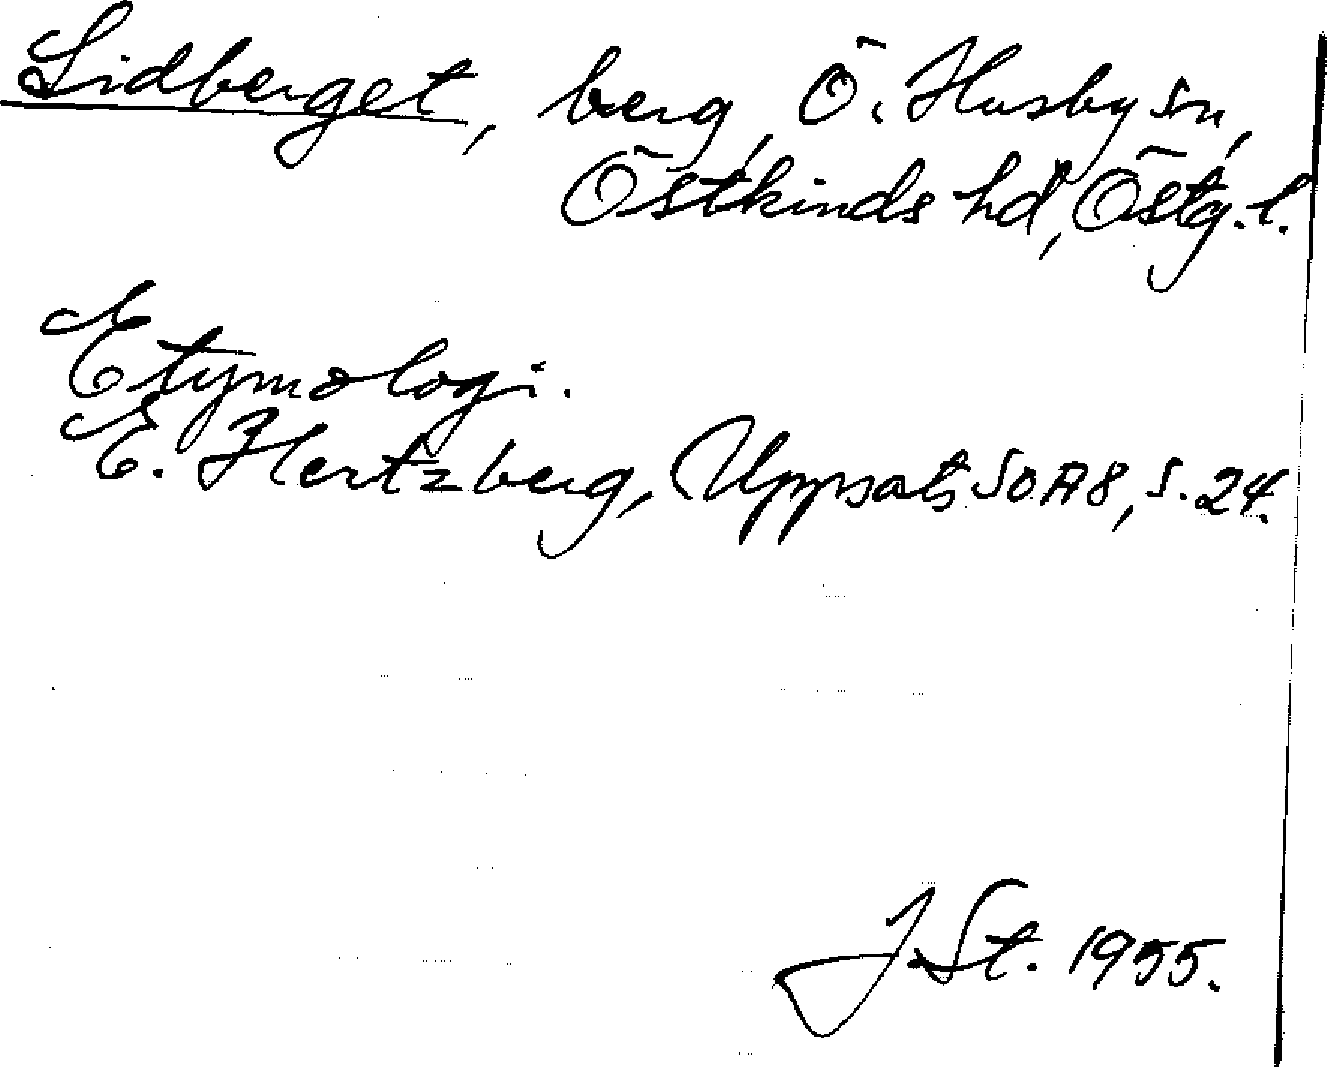 Lidberget, berg, Ö. Husby sn,
Östkinds hd, Östg. l.
Etymologi.
E. Hertzberg, Uppsats SOA 8, s. 24.
J. St. 1955.